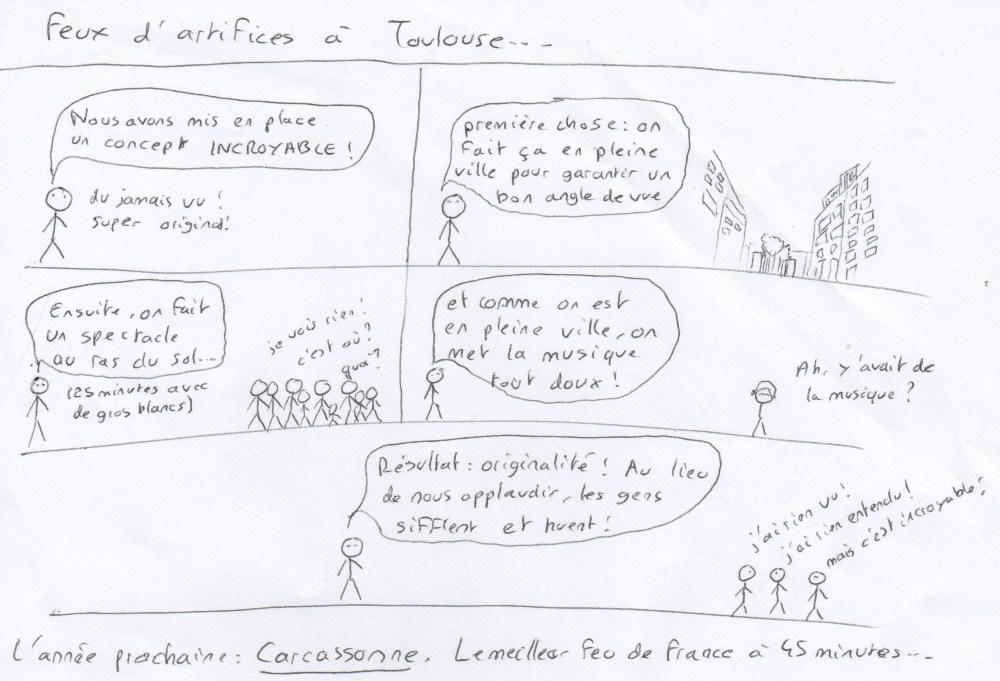 Feux d'artifices à Toulouse....
Nous avons mis en place
un concept INCROYABLE !
du jamais vu !
super original!
première chose : on
fait ça en pleine
ville pour garantir un
bon angle de vue
Ensuite, on fait
un spectacle
au ras du sol...
(25 minutes avec
de gros blancs)
je vois rien !
c'est où ?
quoi ?
et comme on est
en pleine ville, on
met la musique
tout doux !
Ah, y'avait de
la musique ?
Résultat : originalité ! Au lieu
de nous applaudir, les gens
sifflent et huent !
j'ai rien vu !
j'ai rien entendu !
mais c'est incroyable !
L'année prochaine : Carcassonne. Le meilleur feu de France à 45 minutes....